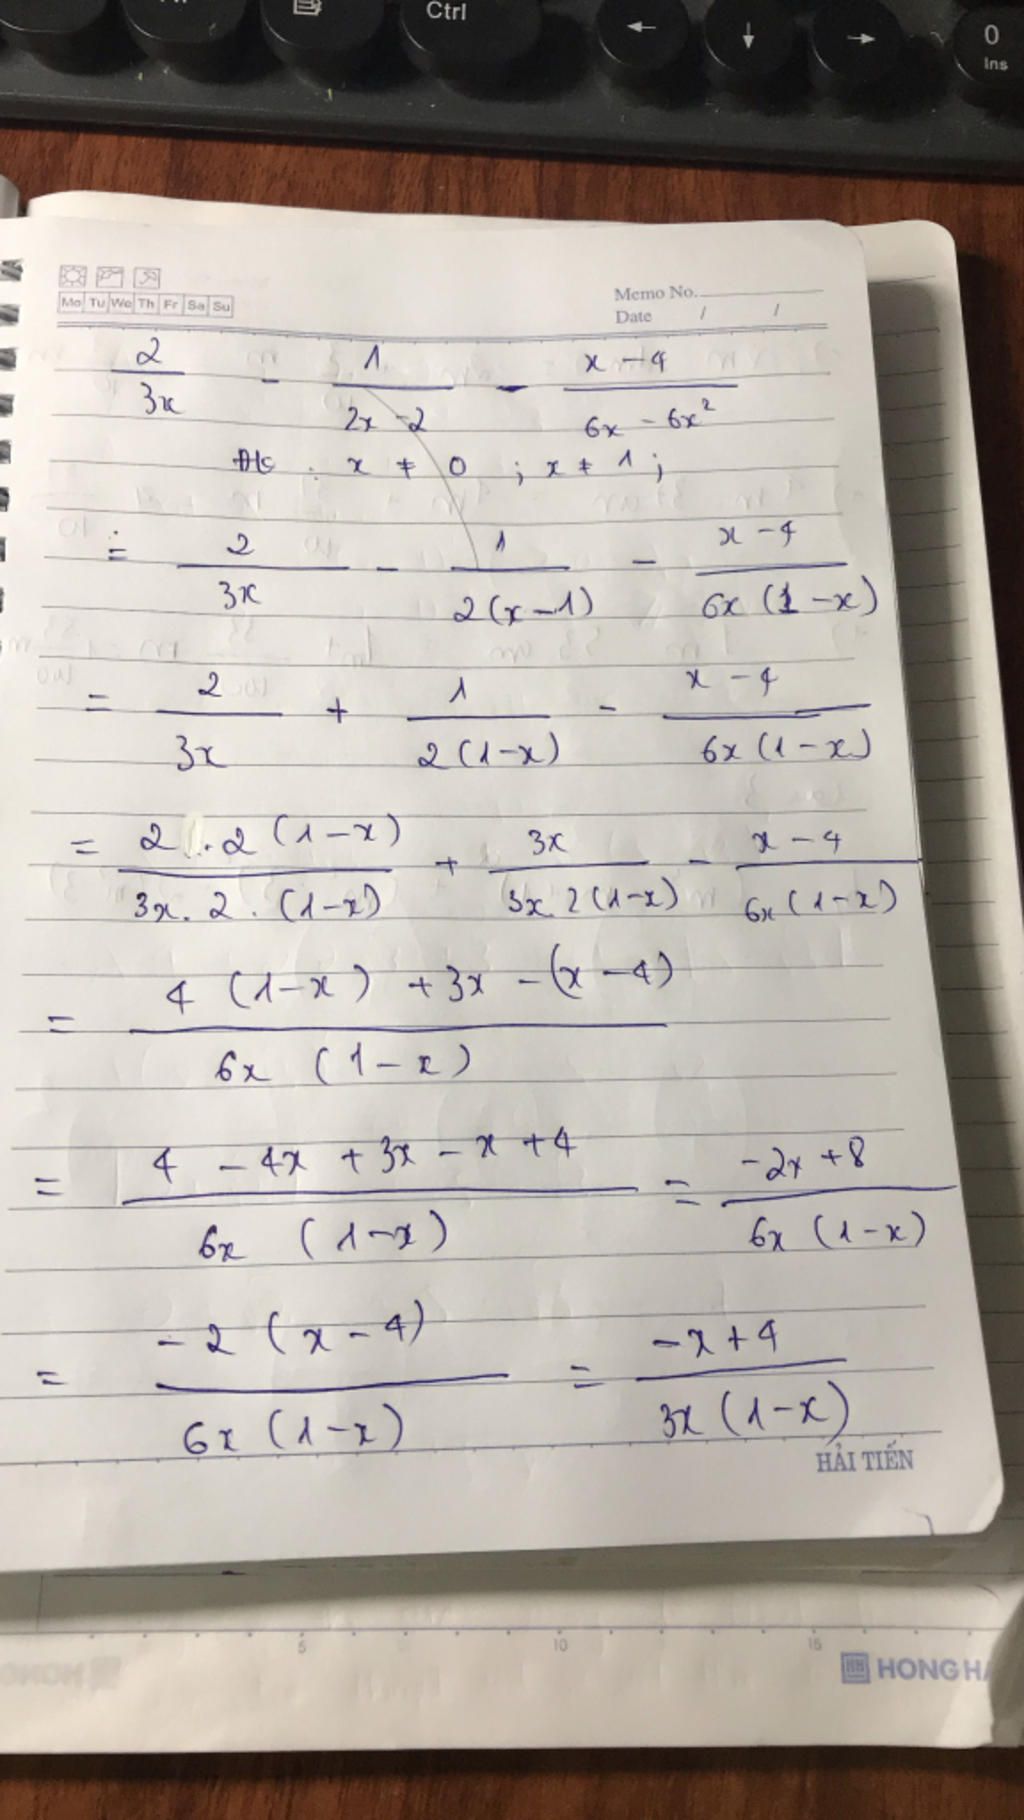 Ctrl
← ↓ → 0
Ins
Mo Tu We Th Fr Sa Su
Memo No.
Date / /
2/3x - 1/(2x - 2) - (x - 4)/(6x - 6x²)
x ≠ 0 ; x ≠ 1 ;
= 2/3x - 1/2(x - 1) - (x - 4)/6x(1 - x)
= 2/3x + 1/2(1 - x) - (x - 4)/6x(1 - x)
= 2 . 2(1 - x)/3x . 2 . (1 - x) + 3x/3x . 2(1 - x) - (x - 4)/6x(1 - x)
= (4(1 - x) + 3x - (x - 4))/6x(1 - x)
= (4 - 4x + 3x - x + 4)/6x(1 - x) = (-2x + 8)/6x(1 - x)
= -2(x - 4)/6x(1 - x) = (-x + 4)/3x(1 - x)
HẢI TIẾN
5 10 15
HH HONG HA